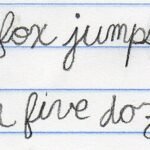 fox jump
five doz